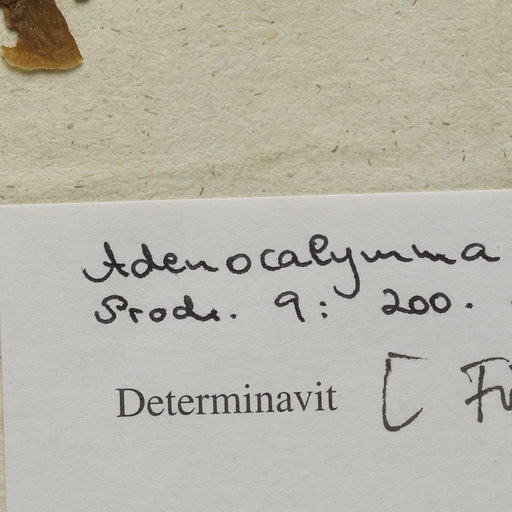 Adenocalymma
Prodr. 9: 200.
Determinavit [